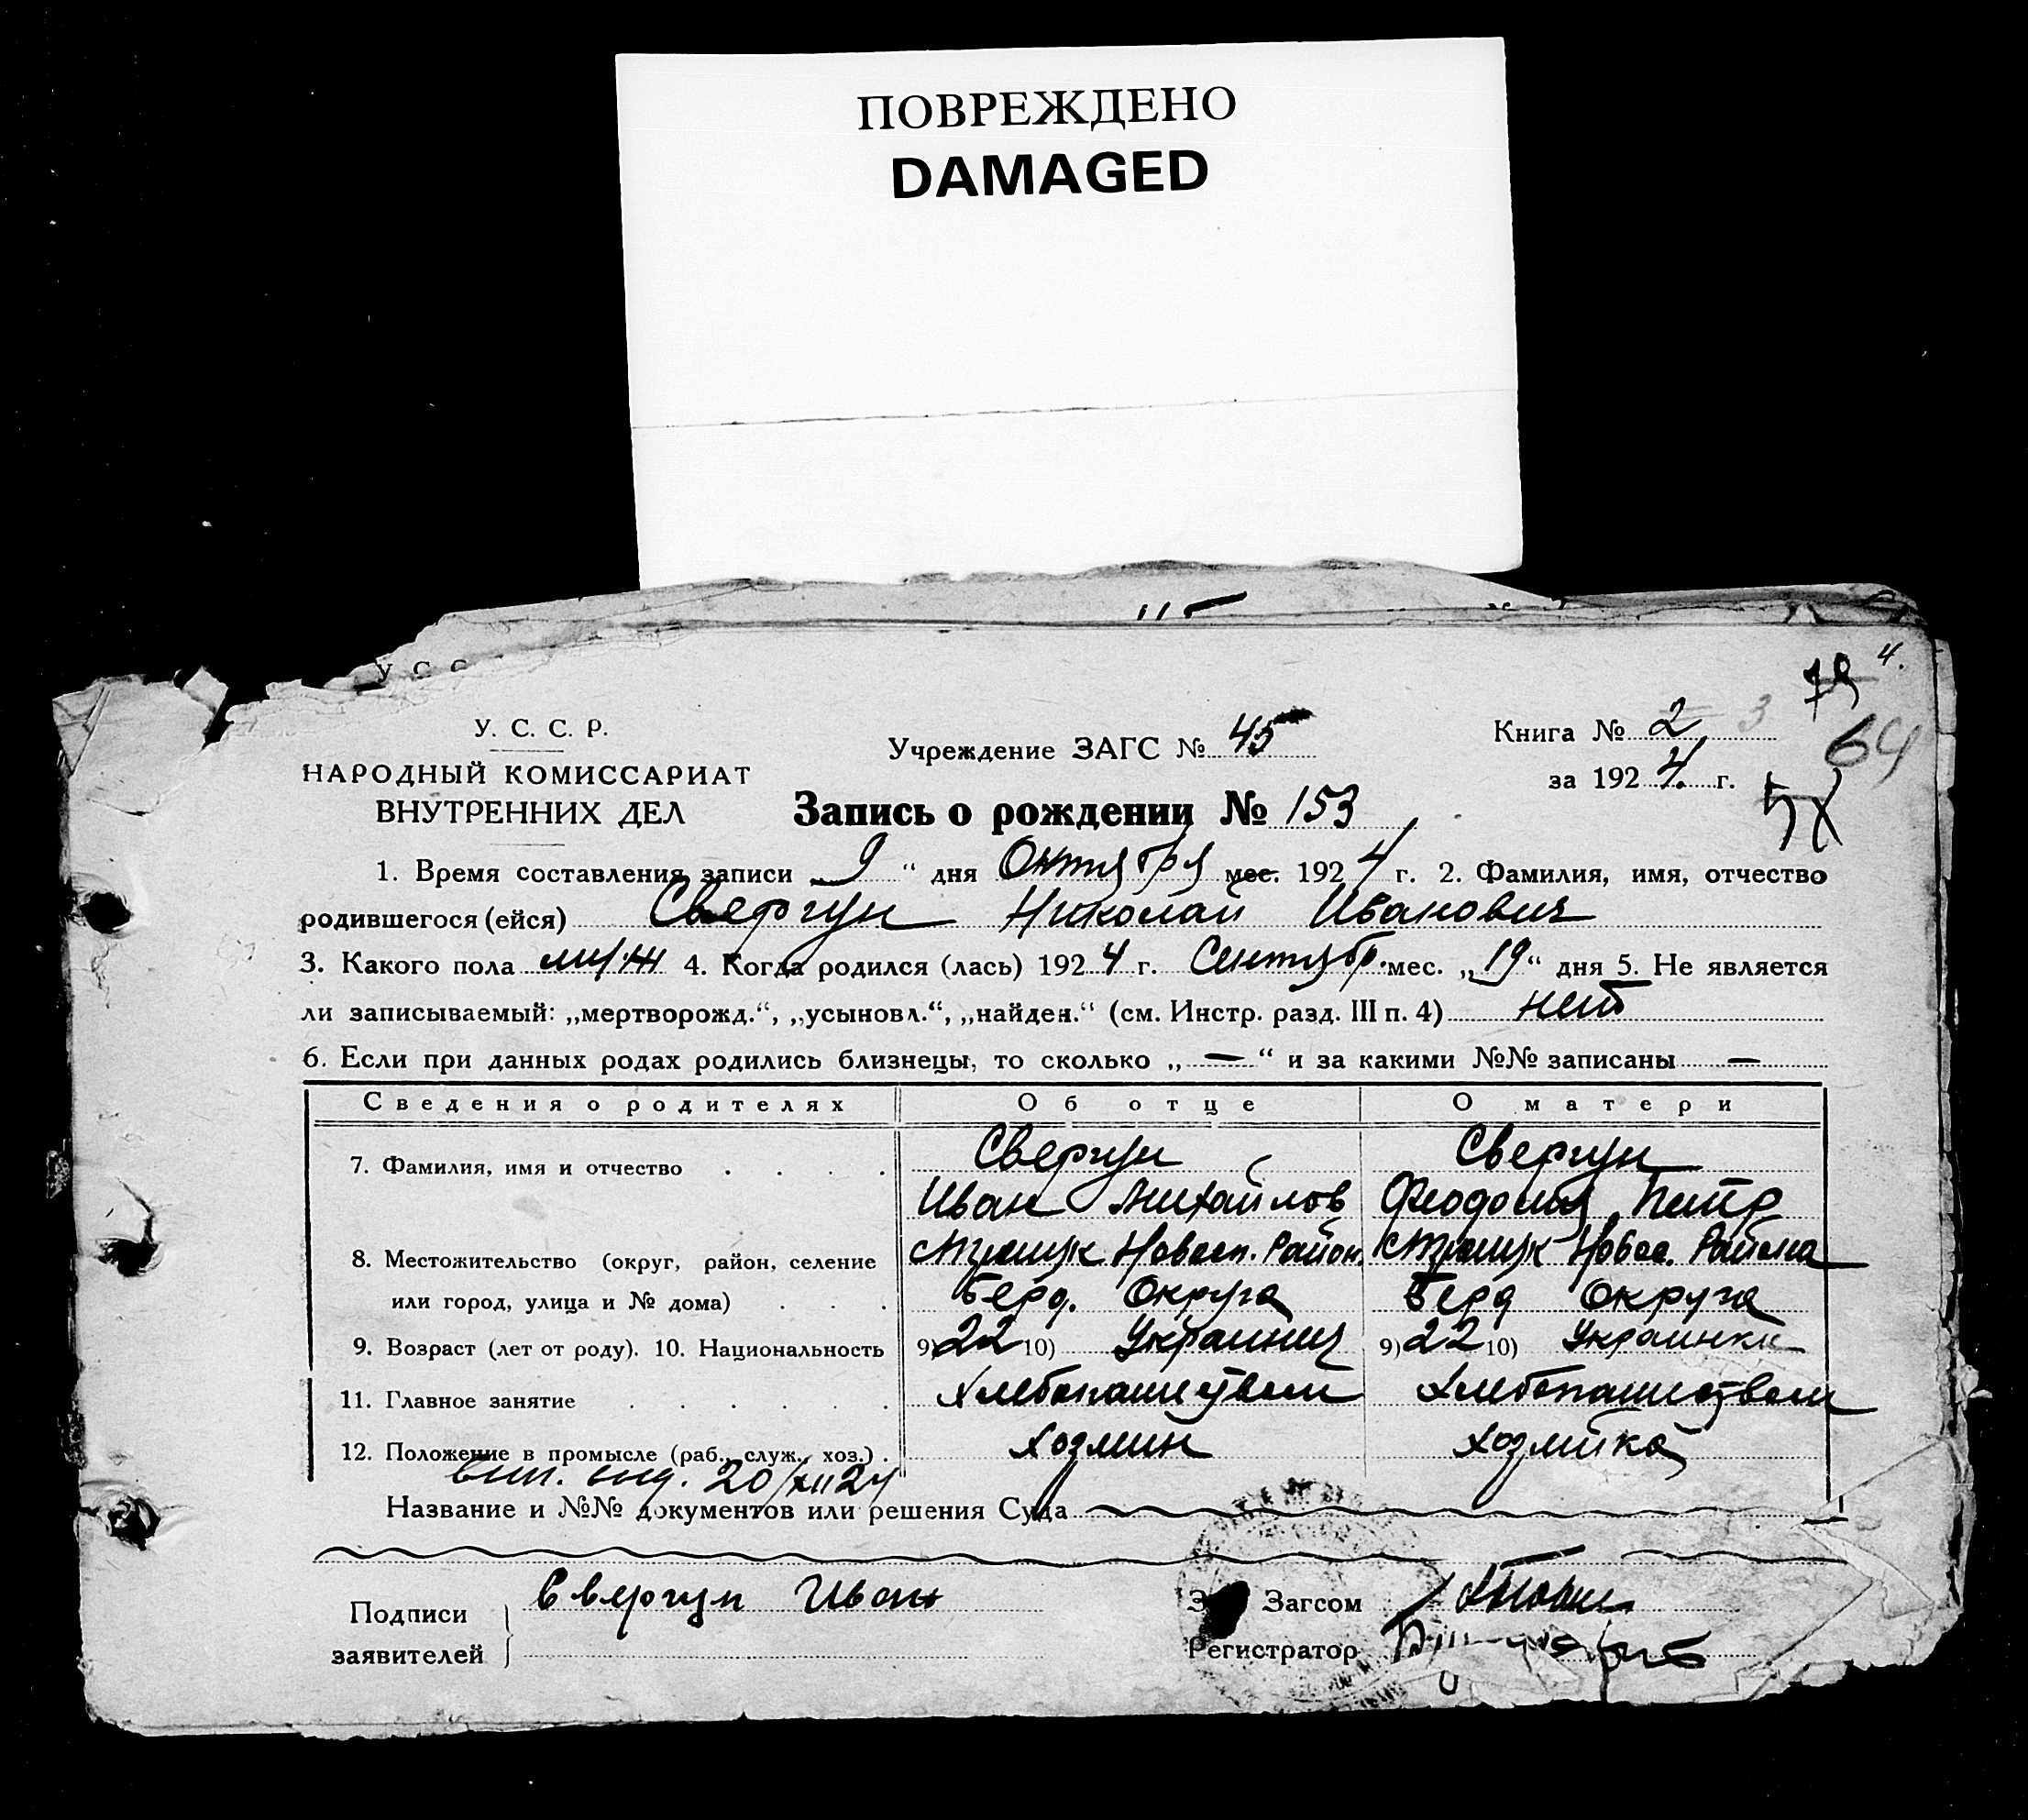 ПОВРЕЖДЕНО
DAMAGED
У С С
4.
У. С. С. Р.
НАРОДНЫЙ КОМИССАРИАТ
ВНУТРЕННИХ ДЕЛ
Учреждение ЗАГС № 45
Книга № 2 3
64
за 1924 г.
Запись о рождении № 153
1. Время составления записи „9“ дня Октября мес. 1924 г. 2. Фамилия, имя, отчество
родившегося (ейся) Свергун Николай Иванович
3. Какого пола муж 4. Когда родился (лась) 1924 г. Сентябр. мес. „19“ дня 5. Не является
ли записываемый: „мертворожд.“, „усыновл.“, „найден.“ (см. Инстр. разд. III п. 4) нет
6. Если при данных родах родились близнецы, то сколько „—“ и за какими №№ записаны —
Сведения о родителях Об отце О матери
7. Фамилия, имя и отчество . . . . Свергун Свергун
Иван Михайлов Феодосия Петр
8. Местожительство (округ, район, селение Новосп. Район. Новос. Района
или город, улица и № дома) . . . Берд. Округа Берд Округа
9. Возраст (лет от роду). 10. Национальность 9) 22 10) Украинец 9) 22 10) Украинка
11. Главное занятие . . . . . . Хлебопашеством Хлебопашеством
12. Положение в промысле (раб., служ., хоз.) . Хозяин Хозяйка
20/XII 24
Название и №№ документов или решения Суда
Подписи
заявителей
Свергун Иван
Загсом
Регистратор